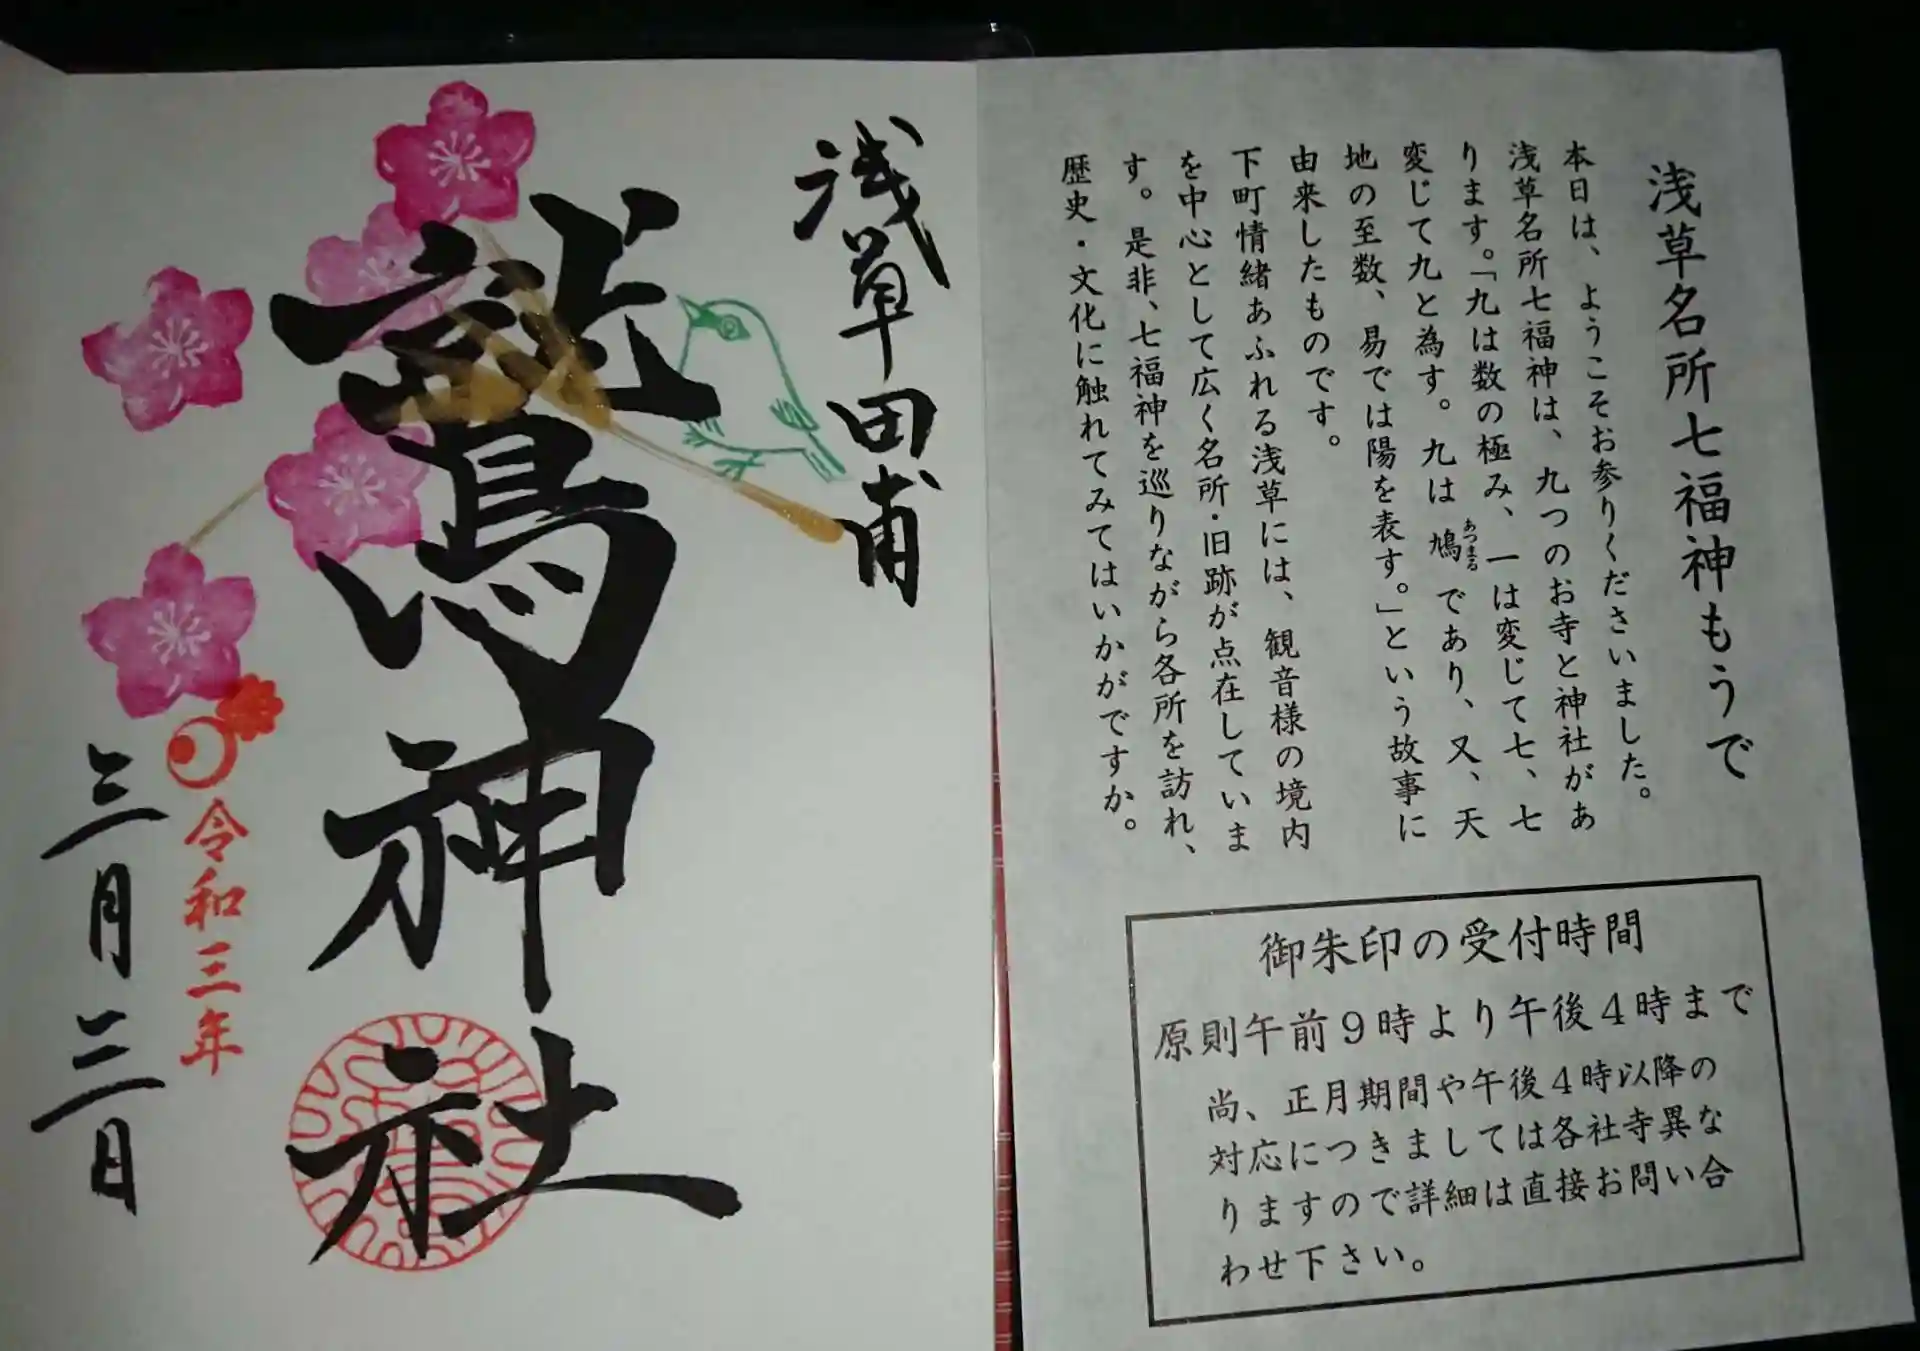 浅草名所七福神もうで
本日は、ようこそお参りくださいました。
浅草名所七福神は、九つのお寺と神社があ
ります。「九は数の極み、一は変じて七、七
変じて九と為す。九は鳩であり、又、天
あつまる
地の至数、易では陽を表す。」という故事に
由来したものです。
下町情緒あふれる浅草には、観音様の境内
を中心として広く名所・旧跡が点在していま
す。是非、七福神を巡りながら各所を訪れ、
歴史・文化に触れてみてはいかがですか。
御朱印の受付時間
原則午前9時より午後4時まで
尚、正月期間や午後4時以降の
対応につきましては各社寺異な
りますので詳細は直接お問い合
わせ下さい。
浅草田甫
鷲神社
令和三年
三月三日